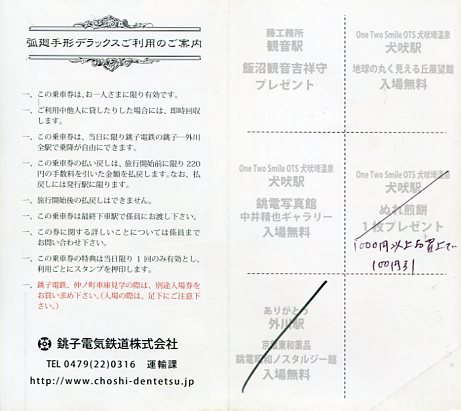 弧廻手形デラックスご利用のご案内
一、この乗車券は、お一人さまに限り有効です。
一、ご利用中他人に貸したりした場合には、即時回収
します。
一、この乗車券は、当日に限り銚子電鉄の銚子―外川
全駅で乗降が自由にできます。
一、この乗車券の払い戻しは、旅行開始前に限り220
円の手数料を引いた金額を払戻します。なお、払
戻しには発行駅に限ります。
一、旅行開始後の払戻しはできません。
一、この乗車券は最終下車駅で係員にお渡し下さい。
一、この券に関する詳しいことについては係員まで
お問い合わせ下さい。
一、この乗車券の特典は当日限り1回のみ有効とし、
利用ごとにスタンプを押印します。
一、銚子電鉄、仲ノ町車庫見学の際は、別途入場券を
お買い求め下さい。(入場の際は、足下にご注意下
さい。)
銚子電気鉄道株式会社
TEL 0479(22)0316 運輸課
http://www.choshi-dentetsu.jp
藤工務所
観音駅
飯沼観音吉祥守
プレゼント
One Two Smile OTS 犬吠埼温泉
犬吠駅
地球の丸く見える丘展望館
入場無料
One Two Smile OTS 犬吠埼温泉
犬吠駅
銚電写真館
中井精也ギャラリー
入場無料
One Two Smile OTS 犬吠埼温泉
犬吠駅
ぬれ煎餅
1枚プレゼント
1000円以上お買上で
100円引
ありがとう
外川駅
京葉東和薬品
銚電昭和ノスタルジー館
入場無料